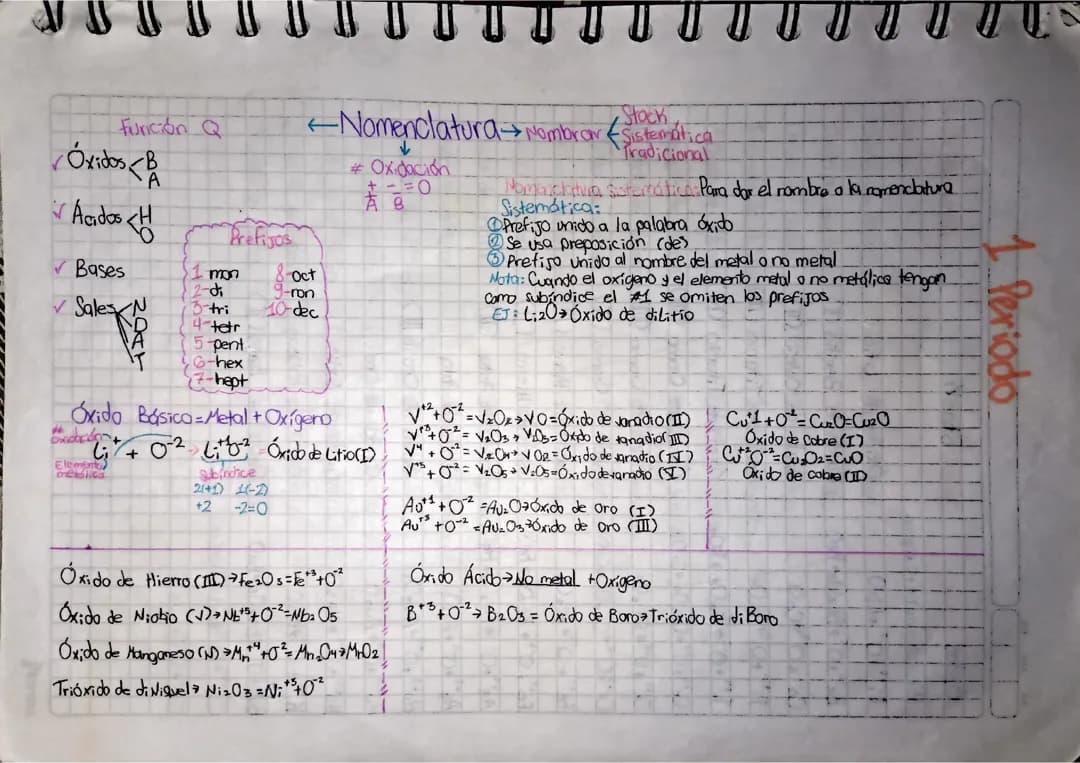 Función Q
←Nomenclatura→Nombrar
Stock
Sistemática
Tradicional
✓Óxidos<B
A
# Oxidación
+ - =0
A B
✓ Ácidos <H
O
Prefijos
1 mon
2-di
3-tri
4-tetr
5-pent
6-hex
7-hept
8-oct
9-non
10-dec
✓ Bases
✓ Sales<N
D
A
T
Nomenclatura sistemática: Para dar el nombre a la nomenclatura
Sistemática:
① Prefijo unido a la palabra óxido
② Se usa preposición (de)
③ Prefijo unido al nombre del metal o no metal
Nota: Cuando el oxígeno y el elemento metal o no metálica tengan
como subíndice el #1 se omiten los prefijos
EJ: Li2O→Óxido de dilitio
1 Periodo
Óxido Básico=Metal+Oxígeno
# oxidación
Li⁺ + O⁻² → Li⁺¹O⁻² Óxido de Litio(I)
Elemento
metálico
Subíndice
2(+1) 1(-2)
+2 -2=0
V⁺²+O⁻²=V2O2→VO=Óxido de vanadio(II)
V⁺³+O⁻²=V2O3→V2O3=Óxido de vanadio(III)
V⁺⁴+O⁻²=V2O4→VO2=Óxido de vanadio(IV)
V⁺⁵+O⁻²=V2O5→V2O5=Óxido de vanadio(V)
Au⁺¹+O⁻²=Au2O→Óxido de oro (I)
Au⁺³+O⁻²=Au2O3→Óxido de oro (III)
Cu⁺1+O⁻²=Cu2O=Cu2O
Óxido de Cobre (I)
Cu⁺²O⁻²=Cu2O2=CuO
Óxido de cobre (II)
Óxido de Hierro(III)→Fe2O3=Fe⁺³+O⁻²
Óxido de Niobio (V)→Nb⁺⁵+O⁻²=Nb2O5
Óxido de Manganeso(IV)→Mn⁺⁴+O⁻²=Mn2O4→MnO2
Trióxido de diNiquel→Ni2O3=Ni⁺³+O⁻²
Óxido Ácido→No metal +Oxígeno
B⁺³+O⁻²→B2O3 = Óxido de Boro→Trióxido de diBoro